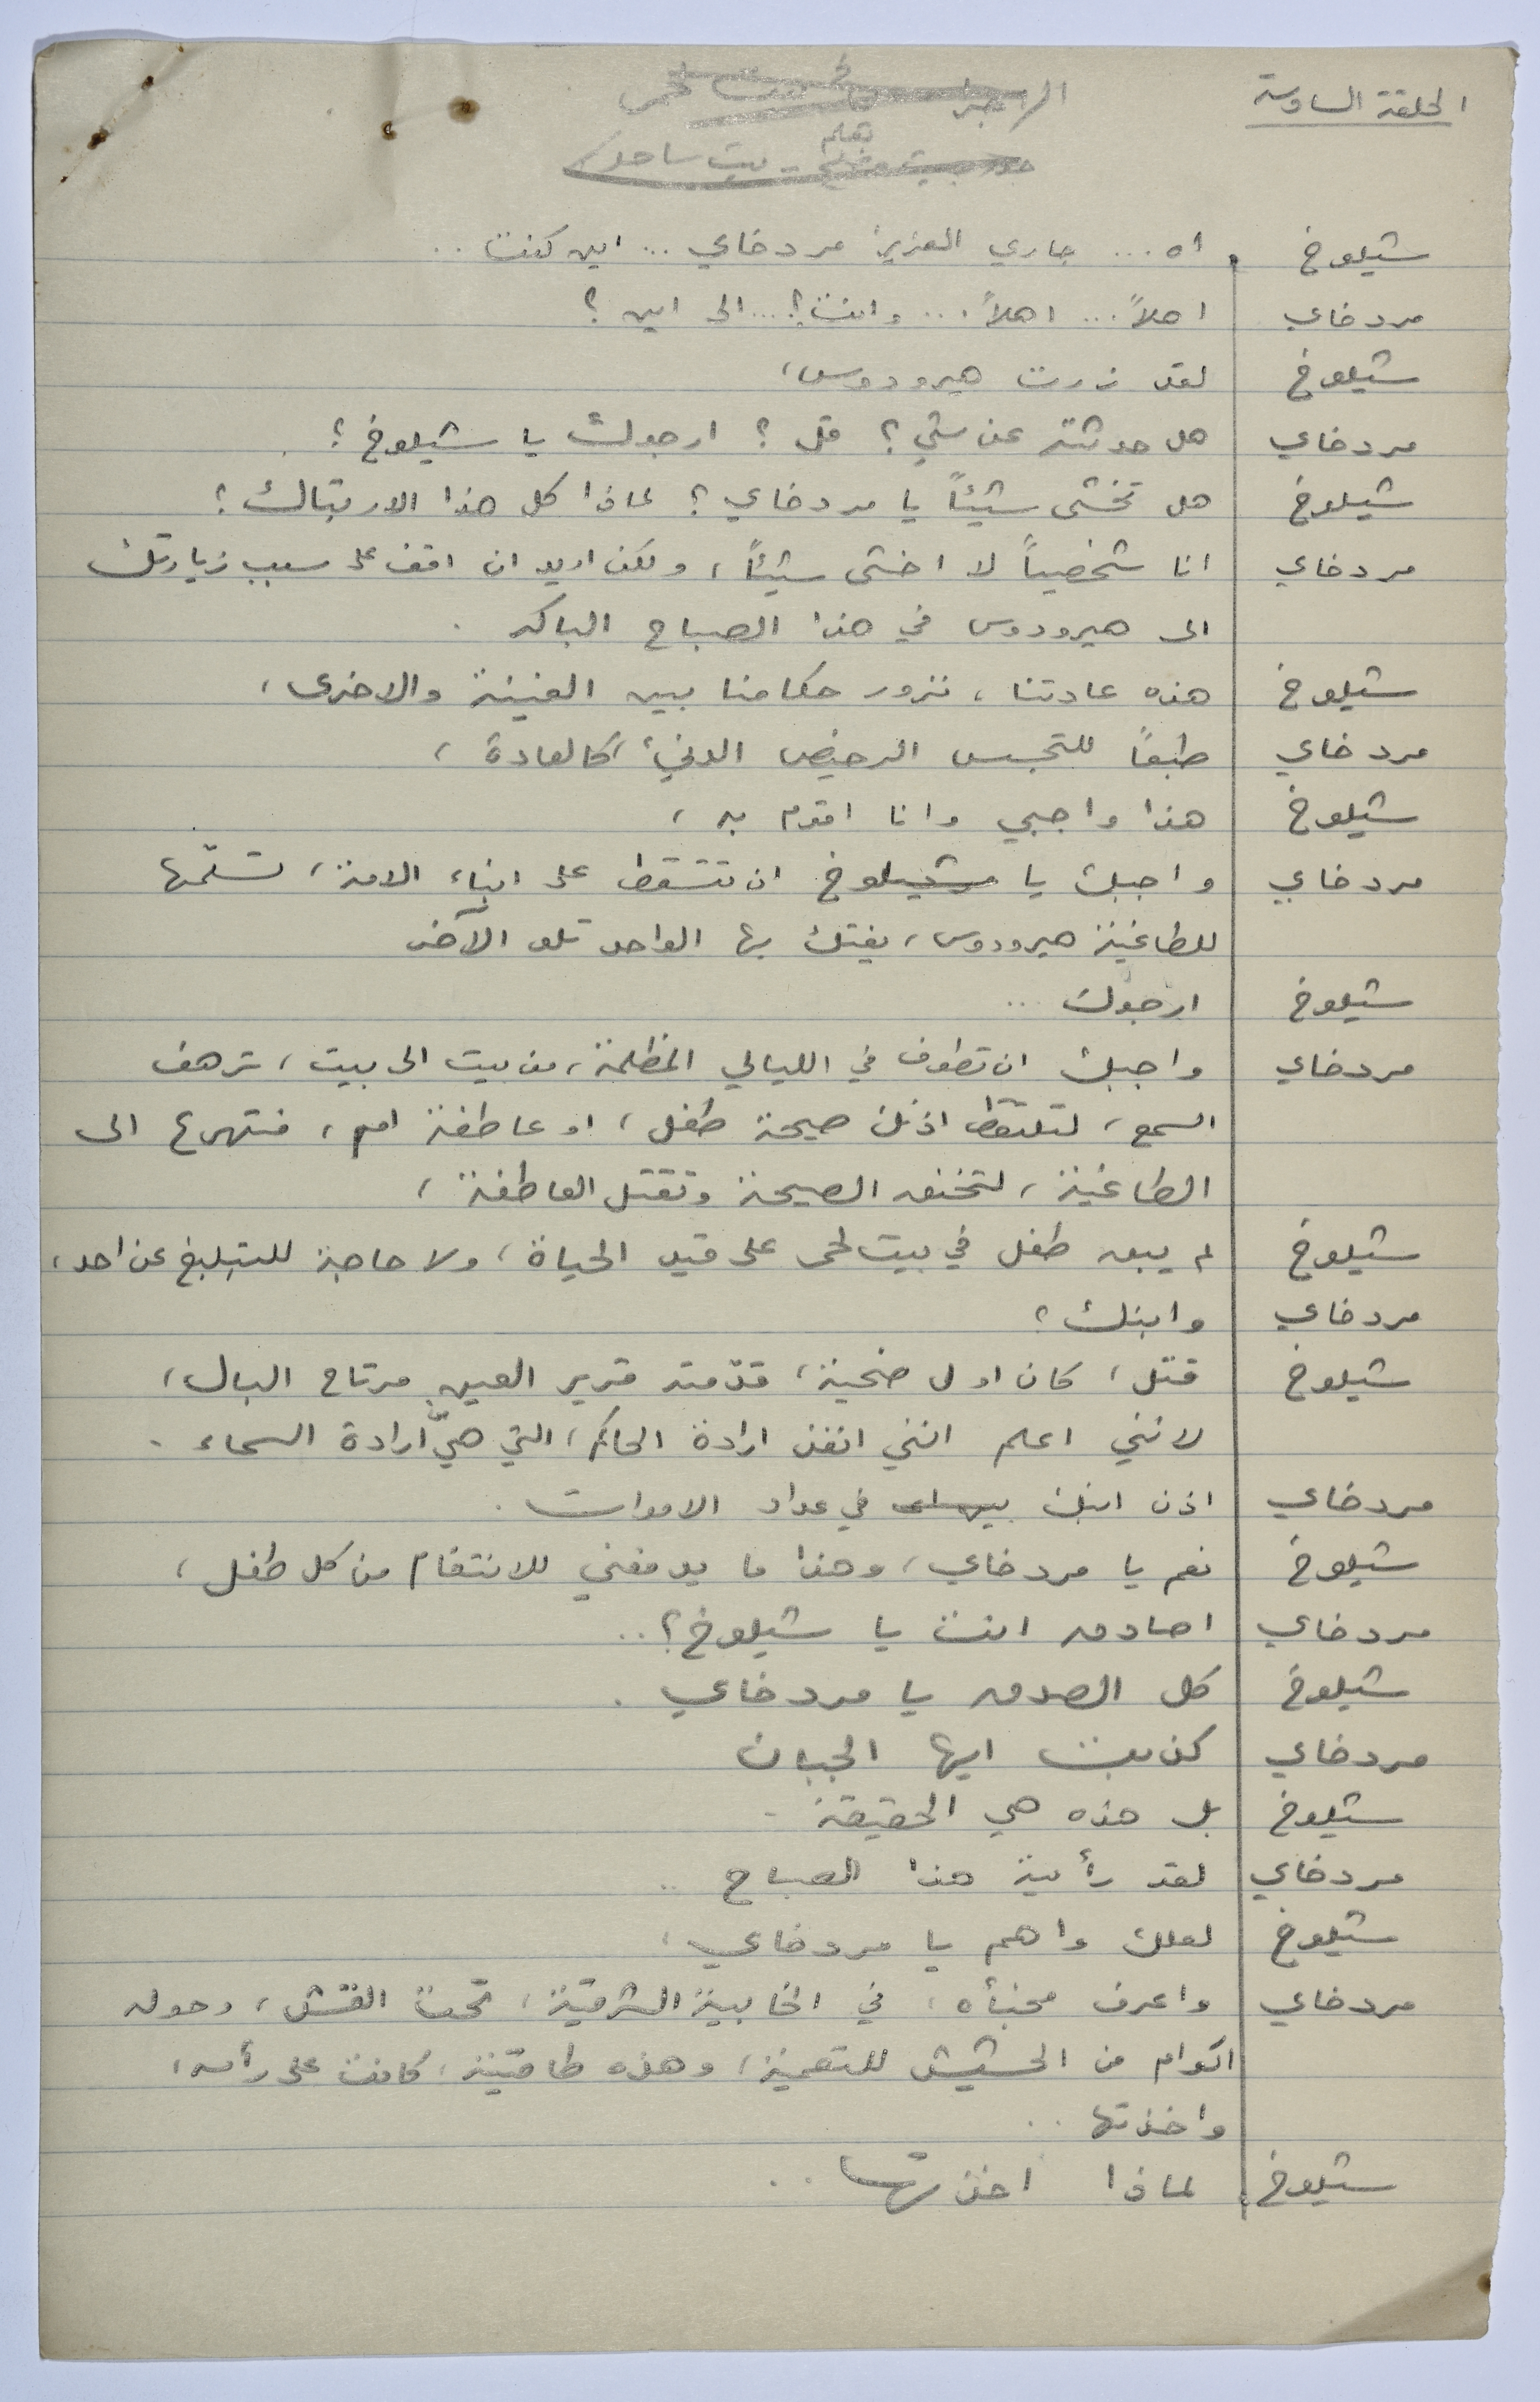 الحلقة السادسة
بيت لحم
بقلم
بيت ساحور
شيلوخ اه ... جاري العزيز مردخاي ... اين كنت ..
مردخاي اهلاً ... اهلاً ... وانت؟ ... الى اين ؟
شيلوخ لقد زرت هيرودوس،
مردخاي هل حدثته عن شي؟ قل ؟ ارجوك يا شيلوخ ؟
شيلوخ هل تخشى شيئاً يا مردخاي ؟ لماذا كل هذا الارتباك ؟
مردخاي انا شخصياً لا اخشى شيئاً، ولكن اريد ان اقف على سبب زيارتك
الى هيرودوس في هذا الصباح الباكر .
شيلوخ هذه عادتنا، نزور حكامنا بين الفينة والاخرى،
مردخاي طبعاً للتجسس الرخيص الدنيء، كالعادة،
شيلوخ هذا واجبي وانا اقوم به،
مردخاي واجبك يا شيلوخ ان تتسقط على ابناء الامة، تسلّمها
للطاغية هيرودوس، يفتك بها الواحد تلو الآخر
شيلوخ ارجوك ...
مردخاي واجبك ان تطوف في الليالي المظلمة، من بيت الى بيت، ترهف
السمع، لتلتقط اذنك صيحة طفل، او عاطفة ام، فتهرع الى
الطاغية، لتخنق الصيحة وتقتل العاطفة،
شيلوخ لم يبق طفل في بيت لحم على قيد الحياة، ولا حاجة للتبليغ عن احد،
مردخاي وابنك ؟
شيلوخ قتل، كان اول ضحية، قدّمته قرير العين مرتاح البال،
لانني اعلم انني انفذ ارادة الحاكم، التي هي ارادة السماء .
مردخاي اذن ابنك في عداد الاموات .
شيلوخ نعم يا مردخاي، وهذا ما يدفعني للانتقام من كل طفل،
مردخاي اصادق انت يا شيلوخ؟ ..
شيلوخ كل الصدق يا مردخاي .
مردخاي كذبت ايها الجبان
شيلوخ بل هذه هي الحقيقة .
مردخاي لقد رأيته هذا الصباح ..
شيلوخ لعلك واهم يا مردخاي،
مردخاي واعرف مخبأه، في الخابية الشرقية، تحت القش، وحوله
اكوام من الحشيش للتعمية، وهذه طاقيته، كانت على رأسه،
واخذتها ..
شيلوخ لماذا اخذتها ..